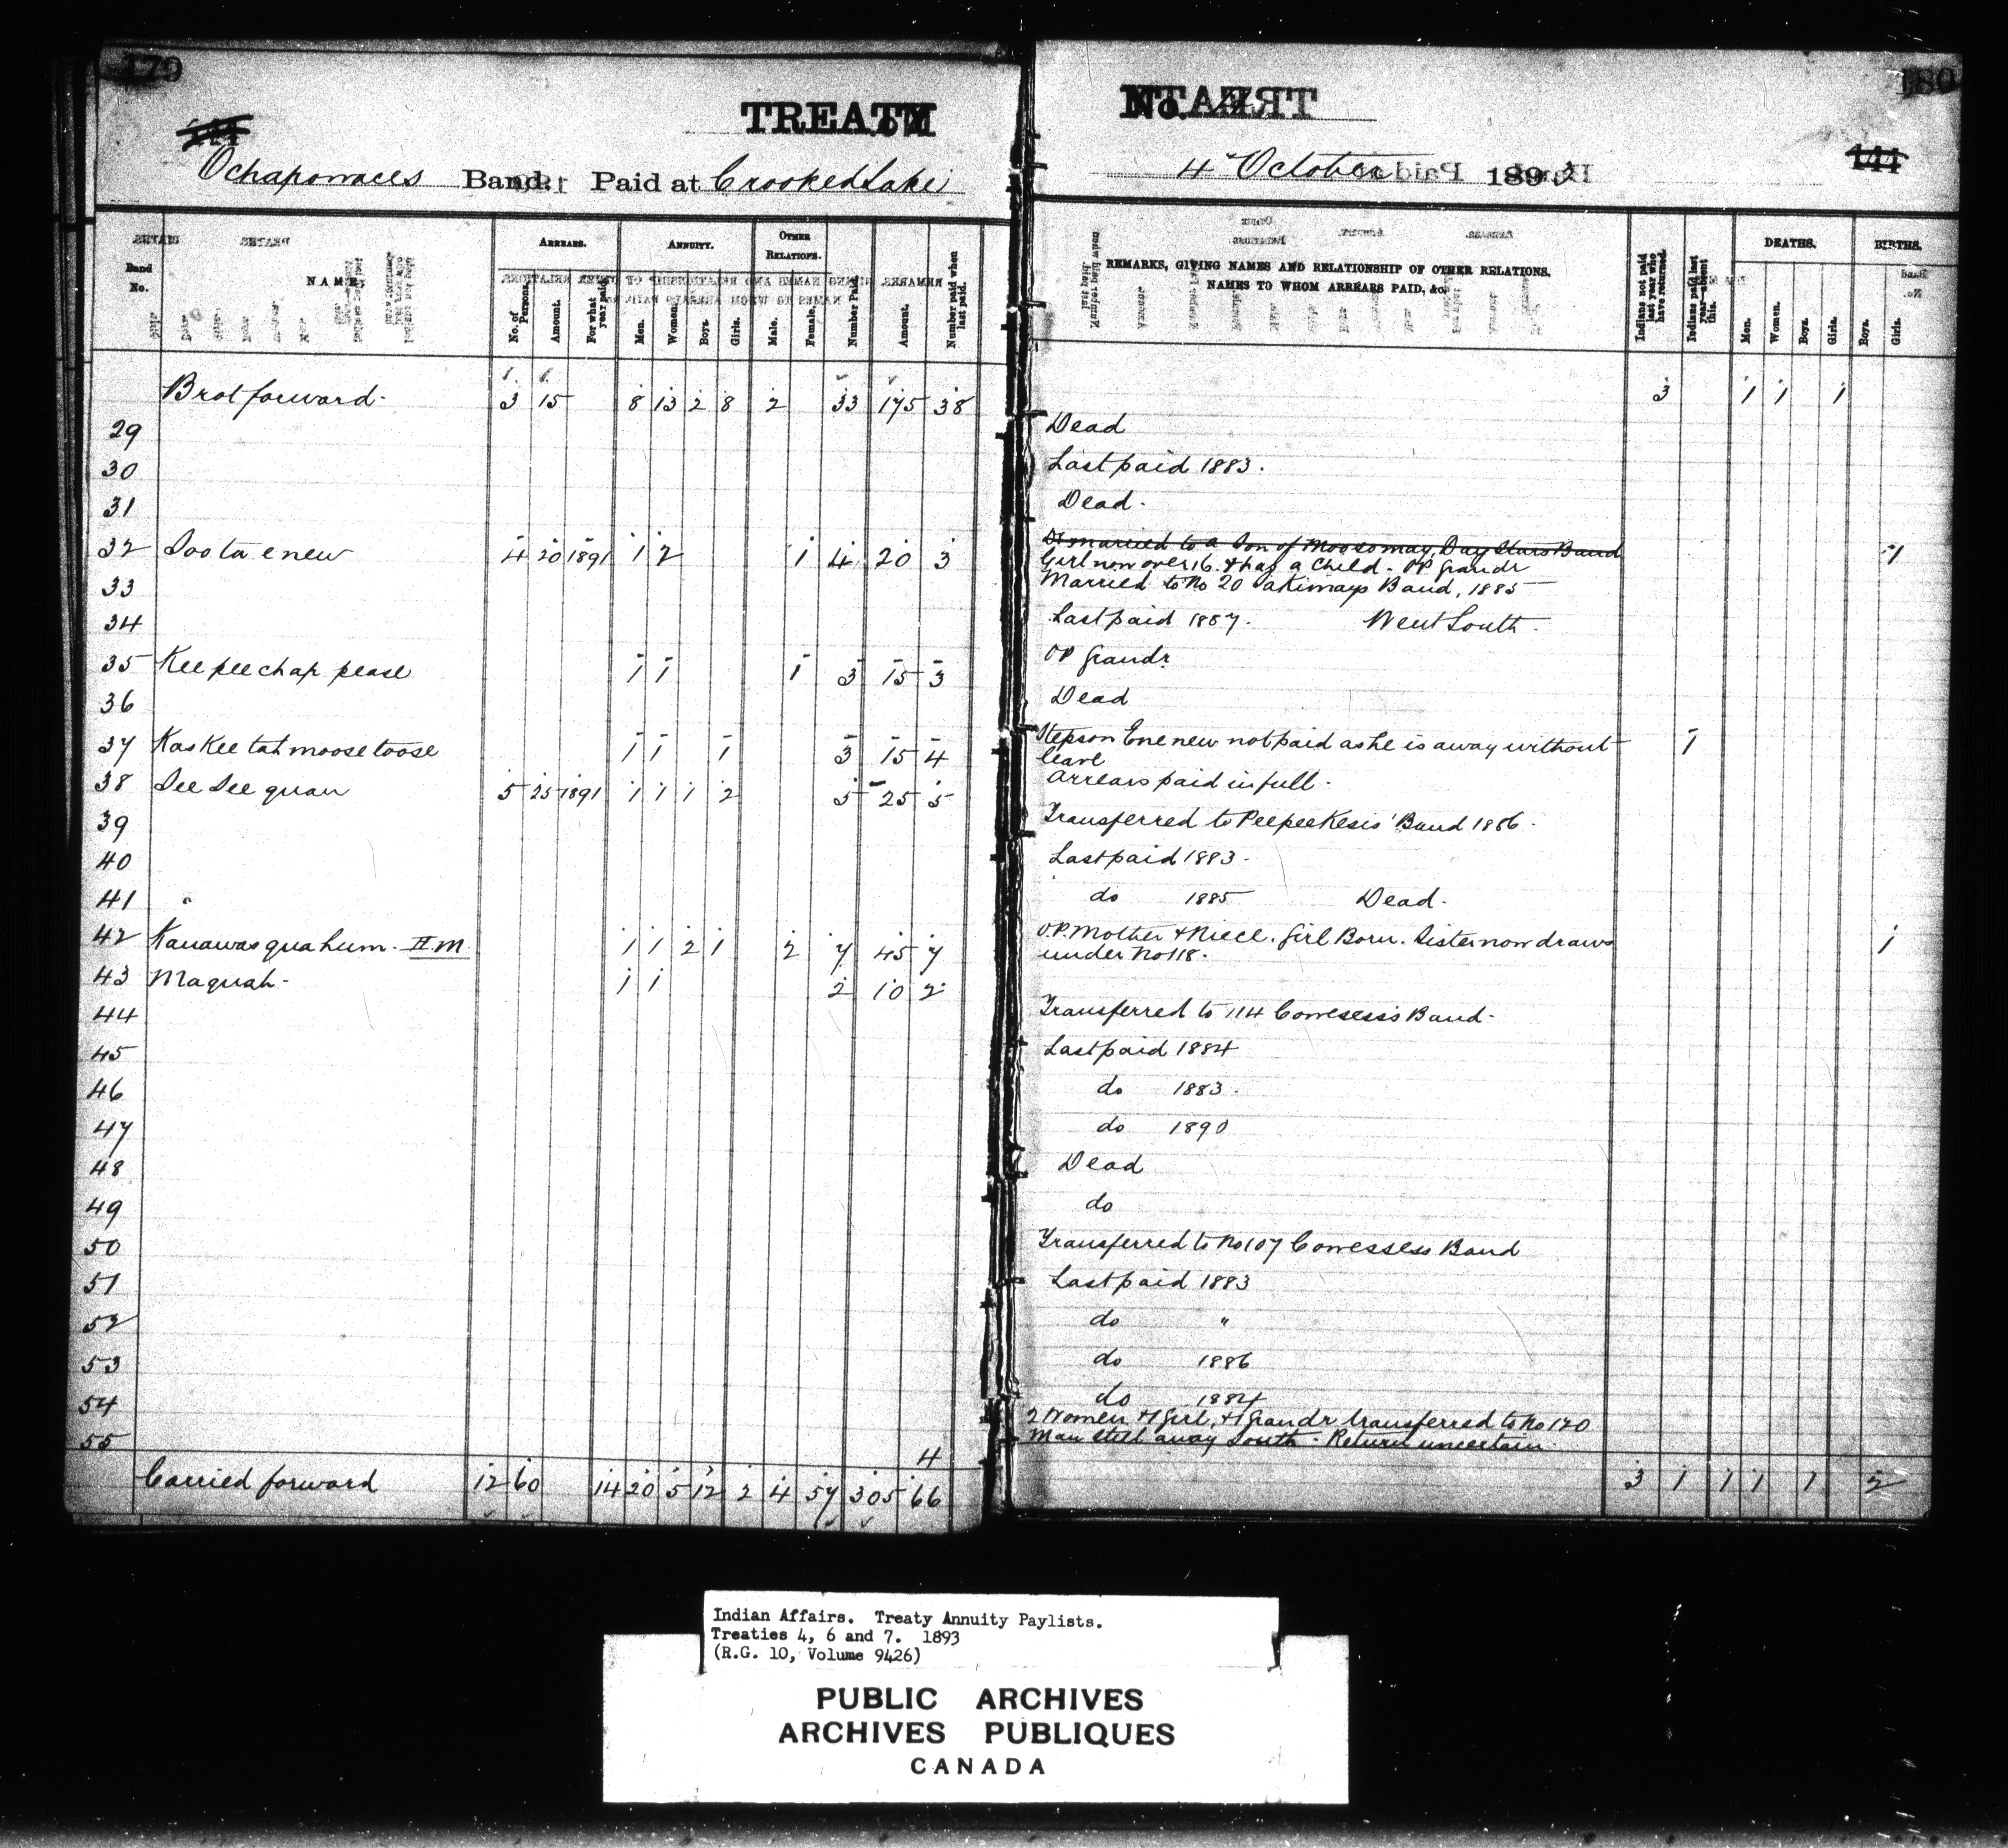 179
144
TREATY
Ochapowaces Band. Paid at Crooked Lake
Band No.
NAME
ARREARS.
No. of Persons.
Amount.
For what year paid.
ANNUITY.
Men.
Women.
Boys.
Girls.
OTHER RELATIONS.
Male.
Female.
Number Paid.
Amount.
Number paid when last paid.
Brot forward- 3 15 8 13 2 8 2 33 175 38
29
30
31
32 Soo ta e new 4 20 1891 1 2 1 4 20 3
33
34
35 Kee pee chap pease 1 1 1 3 15 3
36
37 Kas Kee tah moose toose 1 1 1 3 15 4
38 See See quan 5 25 1891 1 1 1 2 5 25 5
39
40
41
42 Kanawas qua hum. II M. 1 1 2 1 2 7 45 7
43 Maquah- 1 1 2 10 2
44
45
46
47
48
49
50
51
52
53
54
55 4
Carried forward 12 60 14 20 5 12 2 4 57 305 66
180
No. 4
144
4 October 1893
REMARKS, GIVING NAMES AND RELATIONSHIP OF OTHER RELATIONS,
NAMES TO WHOM ARREARS PAID, &c.
Indians not paid last year who have returned.
Indians paid last year—absent this.
DEATHS.
Men.
Women.
Boys.
Girls.
BIRTHS.
Boys.
Girls.
3 1 1 1
Dead
Last paid 1883.
Dead.
married to a Son of Moosomay, Day Stars Band
Girl now over 16. & has a child - OP Grandr 1
Married to No 20 Sakimays Band, 1885
Last paid 1887. Went South.
OP Grandr
Dead
Stepson Enenew not paid as he is away without 1
leave
Arrears paid in full.
Transferred to PeepeeKesis' Band 1886.
Last paid 1883.
do 1885 Dead.
O.P. Mother & Niece. Girl Born. Sister now draws 1
under No 118.
Transferred to 114 Cowesess's Band-
Last paid 1884
do 1883.
do 1890
Dead
do
Transferred to No 107 Cowessess Band
Last paid 1883
do "
do 1886
do 1884
2 Women & 1 Girl, & 1 Grandr transferred to No 120
Man still away South - Return uncertain.
3 1 1 1 1 2
Indian Affairs. Treaty Annuity Paylists.
Treaties 4, 6 and 7. 1893
(R.G. 10, Volume 9426)
PUBLIC ARCHIVES
ARCHIVES PUBLIQUES
CANADA